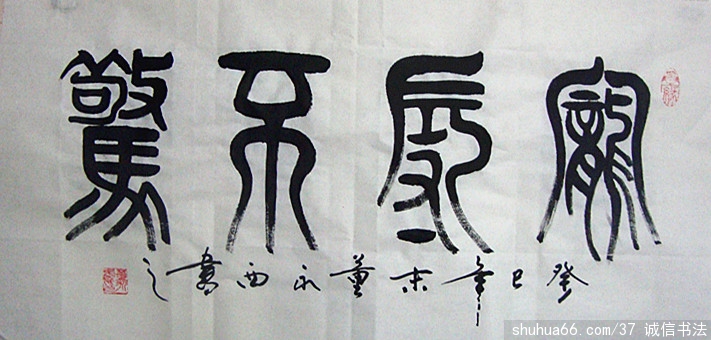 寵辱不驚
癸巳年末董永西書之
shuhua66.com/37 诚信书法